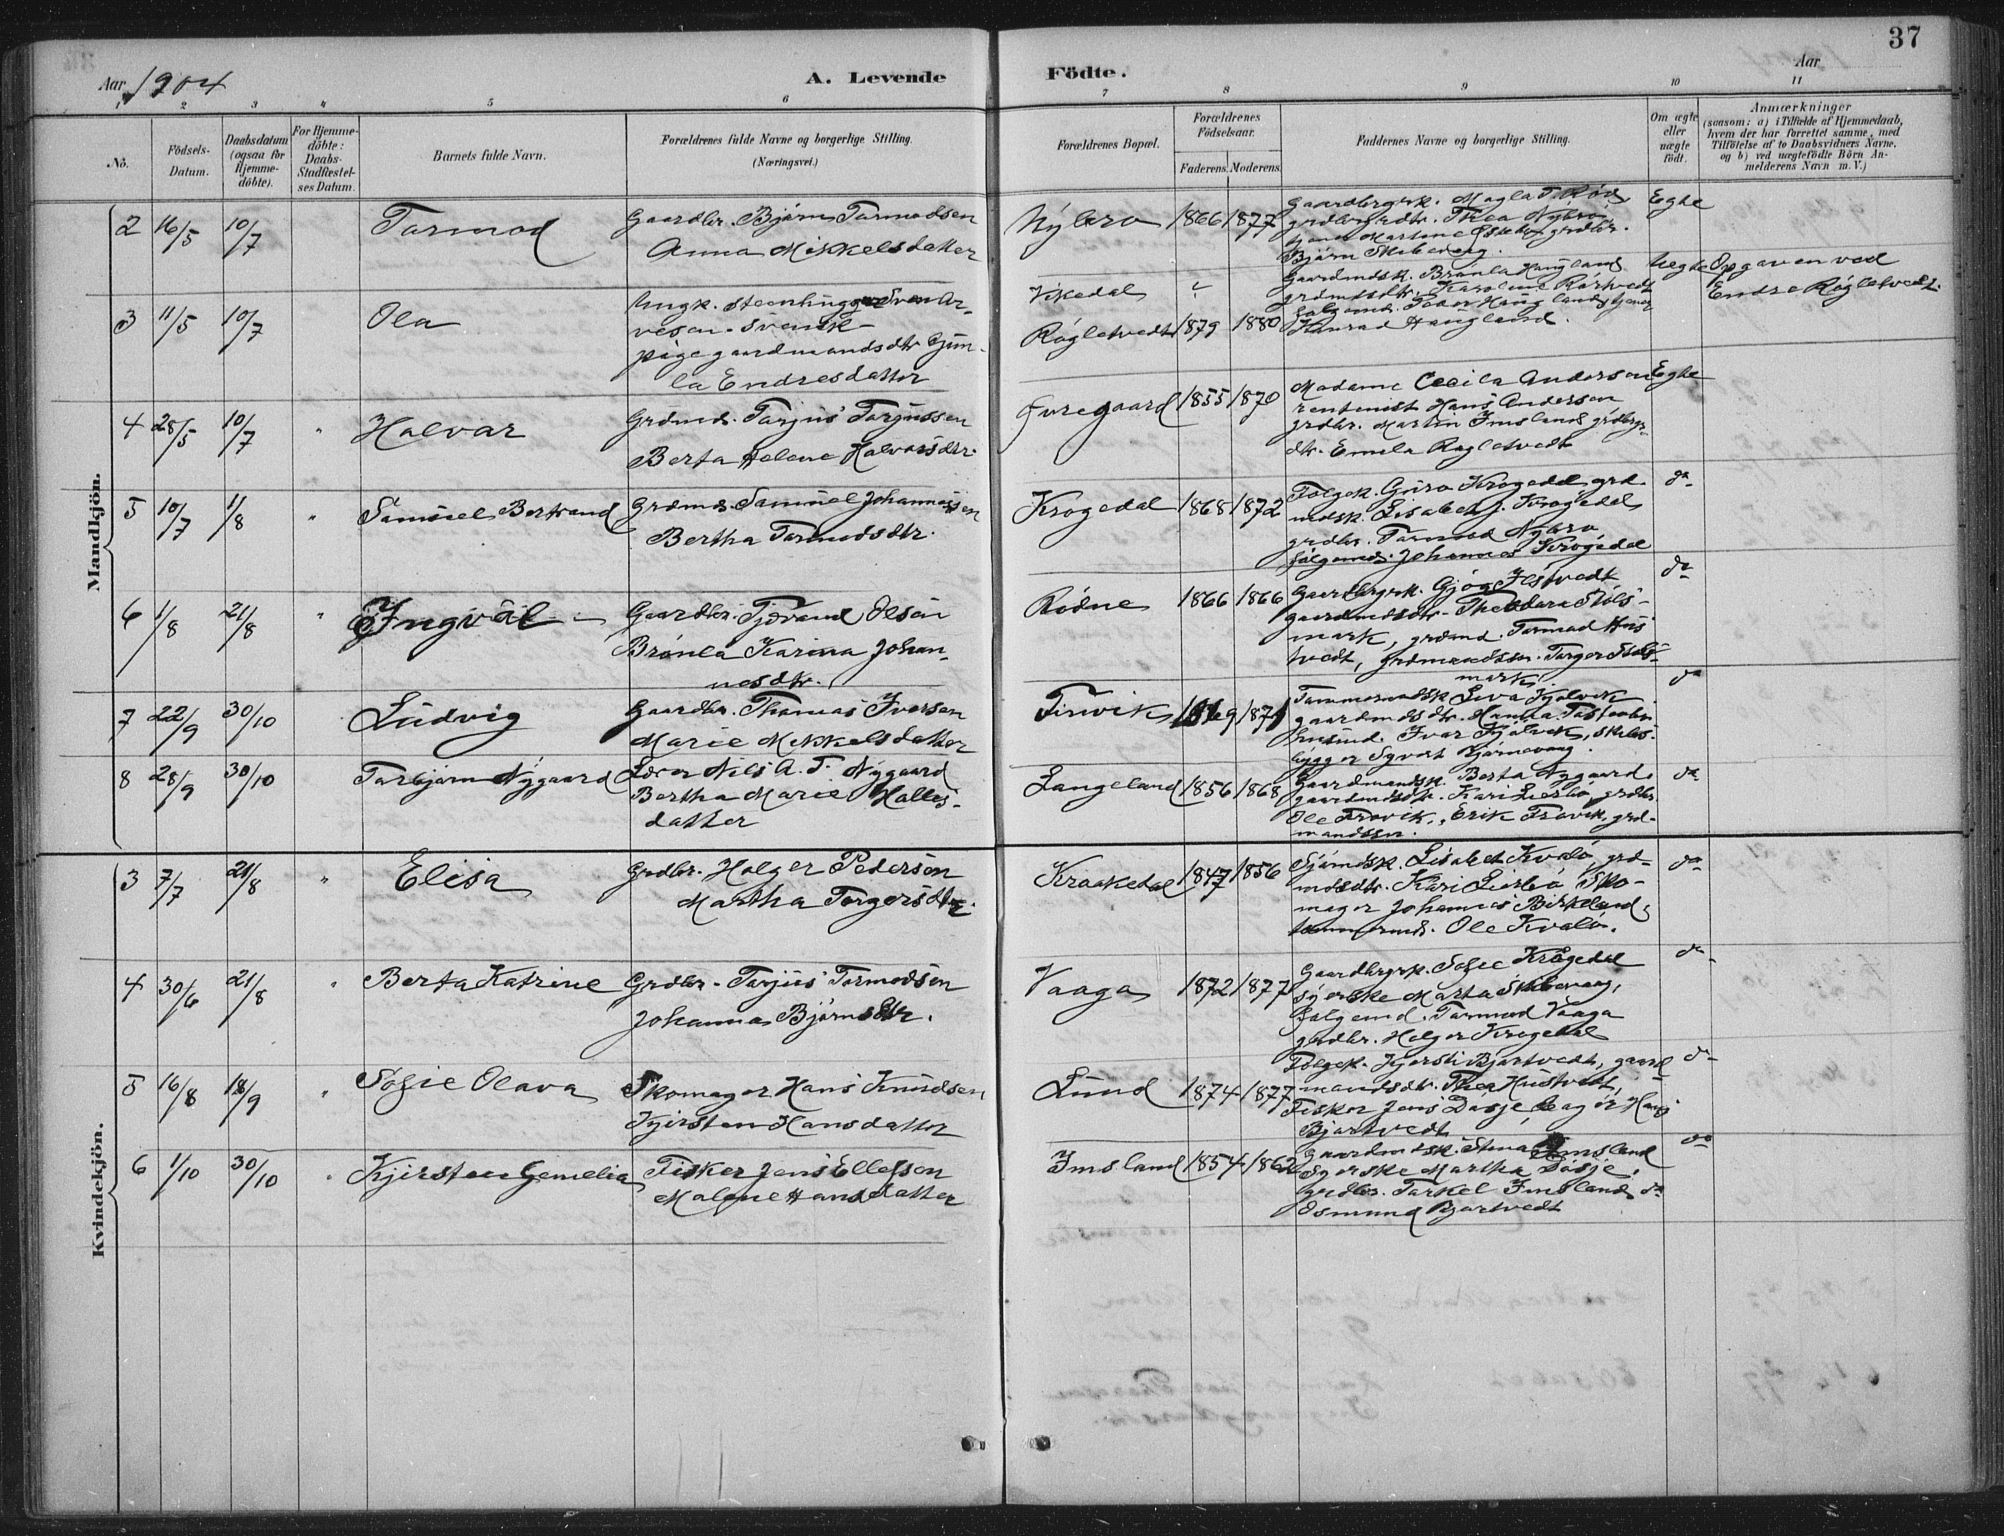 37
Aar 1904
A. Levende
Födte.
Aar
1 2 3 4 5 6 7 8 9 10 11
No.
Födsels-
Datum.
Daabsdatum
(ogsaa for
Hjemme-
döbte).
For Hjemme-
döbte:
Daabs-
Stadfæstel-
ses Datum.
Barnets fulde Navn.
Forældrenes fulde Navne og borgerlige Stilling.
(Næringsvei.)
Forældrenes Bopæl.
Forældrenes
Födselsaar.
Faderens. Moderens.
Faddernes Navne og borgerlige Stilling.
Om ægte
eller
uægte
födt.
Anmærkninger
(saasom: a) i Tilfælde af Hjemmedaab,
hvem der har forrettet samme, med
Tilföielse af to Daabsvidners Navne,
og b) ved uægtefödte Börn An-
melderens Navn m. V.)
Mandkjön.
2 16/5 10/7 Tarmod
Gaardbr. Bjørn Tarmodsen
Anna Mikkelsdatter
Nybro 1866 1877
Egte
Bjørn
3 11/5 10/7 Ola
Ungk. Steenhugger Sven Ar-
vesen. Svensk
pige gaardmandsdtr Gun-
la Endresdatter
Vikedal
Røgletvedt 1879 1880
Gaardmdsk. Brønla Haugland
Konrad Haugland.
Uegte Opgaven ved
Endre Røgletvedt.
4 28/5 10/7 " Halvar
Grdmd. Tarjus Tarjussen
Berta Helene Halvorsdtr.
Øvregaard 1855 1870
Madame Cecila Anderson
rentenist Hans Anderson
grdbr. Martin Imsland grdbrs-
dtr. Emela Røgletvedt
Egte
5 10/7 11/8 " Samuel Bertrand
Grdmd. Samuel Johannessen
Bertha Tarmodsdtr.
Krogedal 1868 1872
Følgek. Guro Krogedal grd
mdsk. Lisabet J. Krogedal
grdbr. Tarmod Nybro
følgemd. Johannes Krogedal
do
6 1/8 21/8 " Ingval
Gaardbr. Tjøvand Olsen
Brønla Karina Johan-
nesdtr.
Rødne 1866 1866
gaardmdsdtr. Theodora Støls-
mark, grdmd. Tarmod Hus
tvedt, grdmandssøn. Torger Støls-
mark.
do
7 22/9 30/10 Ludvig
Gaardbr. Thomas Iversen
Marie Mikkelsdatter
Finvik 1869 1871
husmd. Ivar Kjølvik, skibs-
bygger Syvert Bjørnevaag.
do
8 28/9 30/10 Tarbjørn Nygaard
Lærer Nils A. T. Nygaard
Bertha Marie Halles-
datter
Langeland 1856 1868
Gaardmandsk. Berta Nygaard
gaardmdsdtr. Kari Lierbø, grdbr.
Ole Frøvik, Erik Frøvik, grd-
mandssøn.
do
Kvindekjön.
3 7/7 21/8 " Elisa
Grdbr. Holger Pedersen
Martha Torgersdtr.
Kraakedal 1847 1856
Sjømdsk. Lisabet Kvalø, grd-
mdsdtr. Kari Lierbø Sko-
mager Johannes Birkeland,
tømmermd. Ole Kvalø.
do
4 30/6 21/8 " Berta Katrine
Grdbr. Tarjus Tormodsen
Johanna Bjørnsdtr.
Vaaga 1872 1877
Gaardbrgrk. Sofie Krogedal
syerske Marta Skibevaag,
følgemd. Tarmod Vaaga
grdbr. Holger Krogedal
do
5 16/8 18/9 " Sofie Olava
Skomager Hans Knudsen
Kjirsten Hansdatter
Lund 1874 1877
Følgek. Kjersti Bjartvedt, gaard
mandsdtr. Thea Hustvedt,
Fisker Jens Døsje, bager Hans
Bjartvedt
do
6 1/10 30/10 " Kjirsten Gemelia
Fisker Jens Ellefsen
Malene Hansdatter
Imsland 1854 1862
Gaardmdsk. Stina Imsland
Syerske Martha Døsje,
Grdbr. Tarkel Imsland do
Osmund Bjartvedt
do